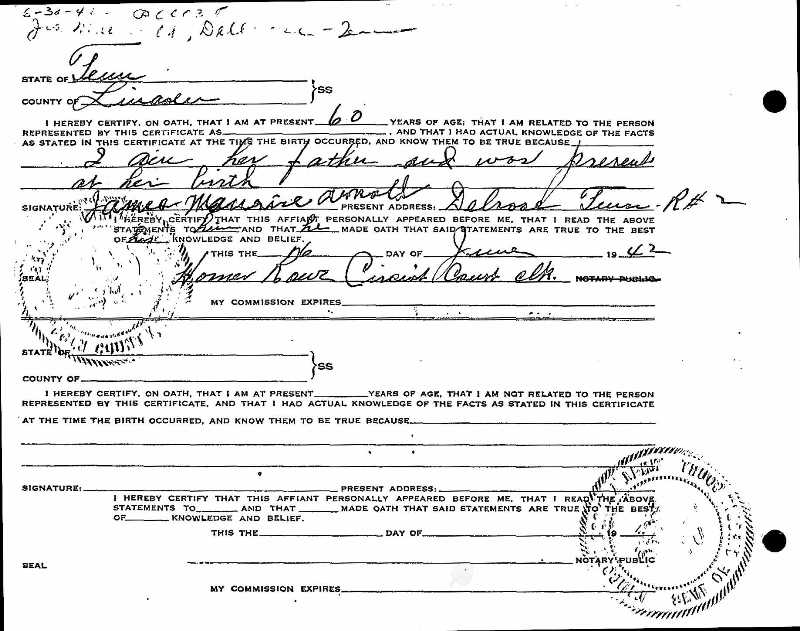 STATE OF Tenn
COUNTY OF Lincoln
SS
I HEREBY CERTIFY, ON OATH, THAT I AM AT PRESENT 60 YEARS OF AGE; THAT I AM RELATED TO THE PERSON
REPRESENTED BY THIS CERTIFICATE AS , AND THAT I HAD ACTUAL KNOWLEDGE OF THE FACTS
AS STATED IN THIS CERTIFICATE AT THE TIME THE BIRTH OCCURRED, AND KNOW THEM TO BE TRUE BECAUSE
I am her father and was present
at her birth
SIGNATURE: James Maurice Arnold PRESENT ADDRESS: Delrose Tenn. R#2
I HEREBY CERTIFY THAT THIS AFFIANT PERSONALLY APPEARED BEFORE ME, THAT I READ THE ABOVE
STATEMENTS TO him AND THAT he MADE OATH THAT SAID STATEMENTS ARE TRUE TO THE BEST
OF KNOWLEDGE AND BELIEF.
THIS THE 16 DAY OF June 1942
SEAL Homer Rowe Circuit Court clk. NOTARY PUBLIC
MY COMMISSION EXPIRES
STATE OF
SS
COUNTY OF
I HEREBY CERTIFY, ON OATH, THAT I AM AT PRESENT YEARS OF AGE, THAT I AM NOT RELATED TO THE PERSON
REPRESENTED BY THIS CERTIFICATE, AND THAT I HAD ACTUAL KNOWLEDGE OF THE FACTS AS STATED IN THIS CERTIFICATE
AT THE TIME THE BIRTH OCCURRED, AND KNOW THEM TO BE TRUE BECAUSE
SIGNATURE: PRESENT ADDRESS:
I HEREBY CERTIFY THAT THIS AFFIANT PERSONALLY APPEARED BEFORE ME, THAT I READ THE ABOVE
STATEMENTS TO AND THAT MADE OATH THAT SAID STATEMENTS ARE TRUE TO THE BEST
OF KNOWLEDGE AND BELIEF.
THIS THE DAY OF 19
SEAL NOTARY PUBLIC
MY COMMISSION EXPIRES